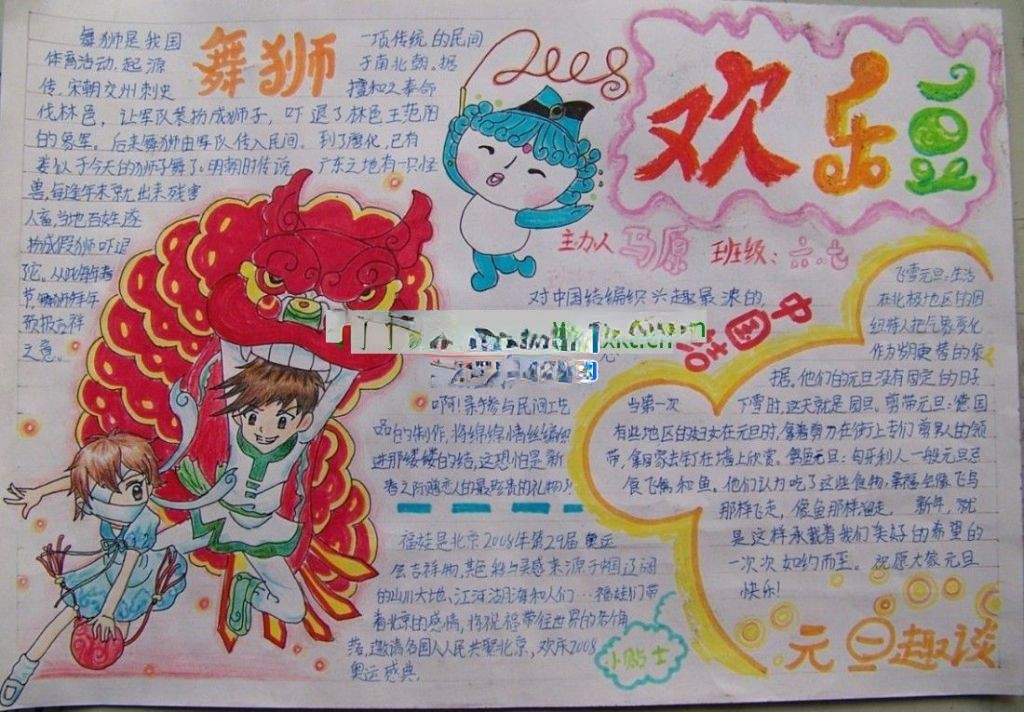 舞狮
舞狮是我国
一项传统的民间
体育活动.起源
于南北朝。据
传.宋朝交州刺史
檀和之奉命
伐林邑，让军队装扮成狮子，吓退了林邑王范阳
的象军。后来舞狮由军队传入民间。到了唐代,已有
类似于今天的狮子舞了。明朝时传说
广东之地有一只怪
兽,每逢年末就出来残害
人畜,当地百姓遂
扮成假狮吓退
节,舞狮拜年
预报吉祥
之意。
2008
欢乐
主办人 马原 班级：六.七
中国结
对中国结编织兴趣最浓的,
啊!亲手参与民间工艺
品的制作,将绵绵情丝编织
进那缕缕的结,这恐怕是新
福娃是北京2008年第29届奥运
会吉祥物,其色彩与灵感来源于中国辽阔
的山川大地、江河湖海和人们…福娃们带
着北京的感情,将祝福带往世界的各个角
落,邀请各国人民共聚北京,欢庆2008
奥运盛典.
小贴士
飞雪元旦:生活
在北极地区的因
纽特人把气象变化
作为岁月更替的依
据。他们的元旦没有固定的日子
当第一次
下雪时,这天就是元旦。剪带元旦:德国
有些地区的妇女在元旦时,拿着剪刀在街上专门剪男人的领
带,拿回家去钉在墙上欣赏。
匈牙利人一般元旦忌
食飞禽和鱼。他们认为吃了这些食物,幸福会像飞鸟
那样飞走，像鱼那样溜走。
新年，就
是这样承载着我们美好的希望的
一次次如约而至。祝愿大家元旦
快乐!
元旦趣谈